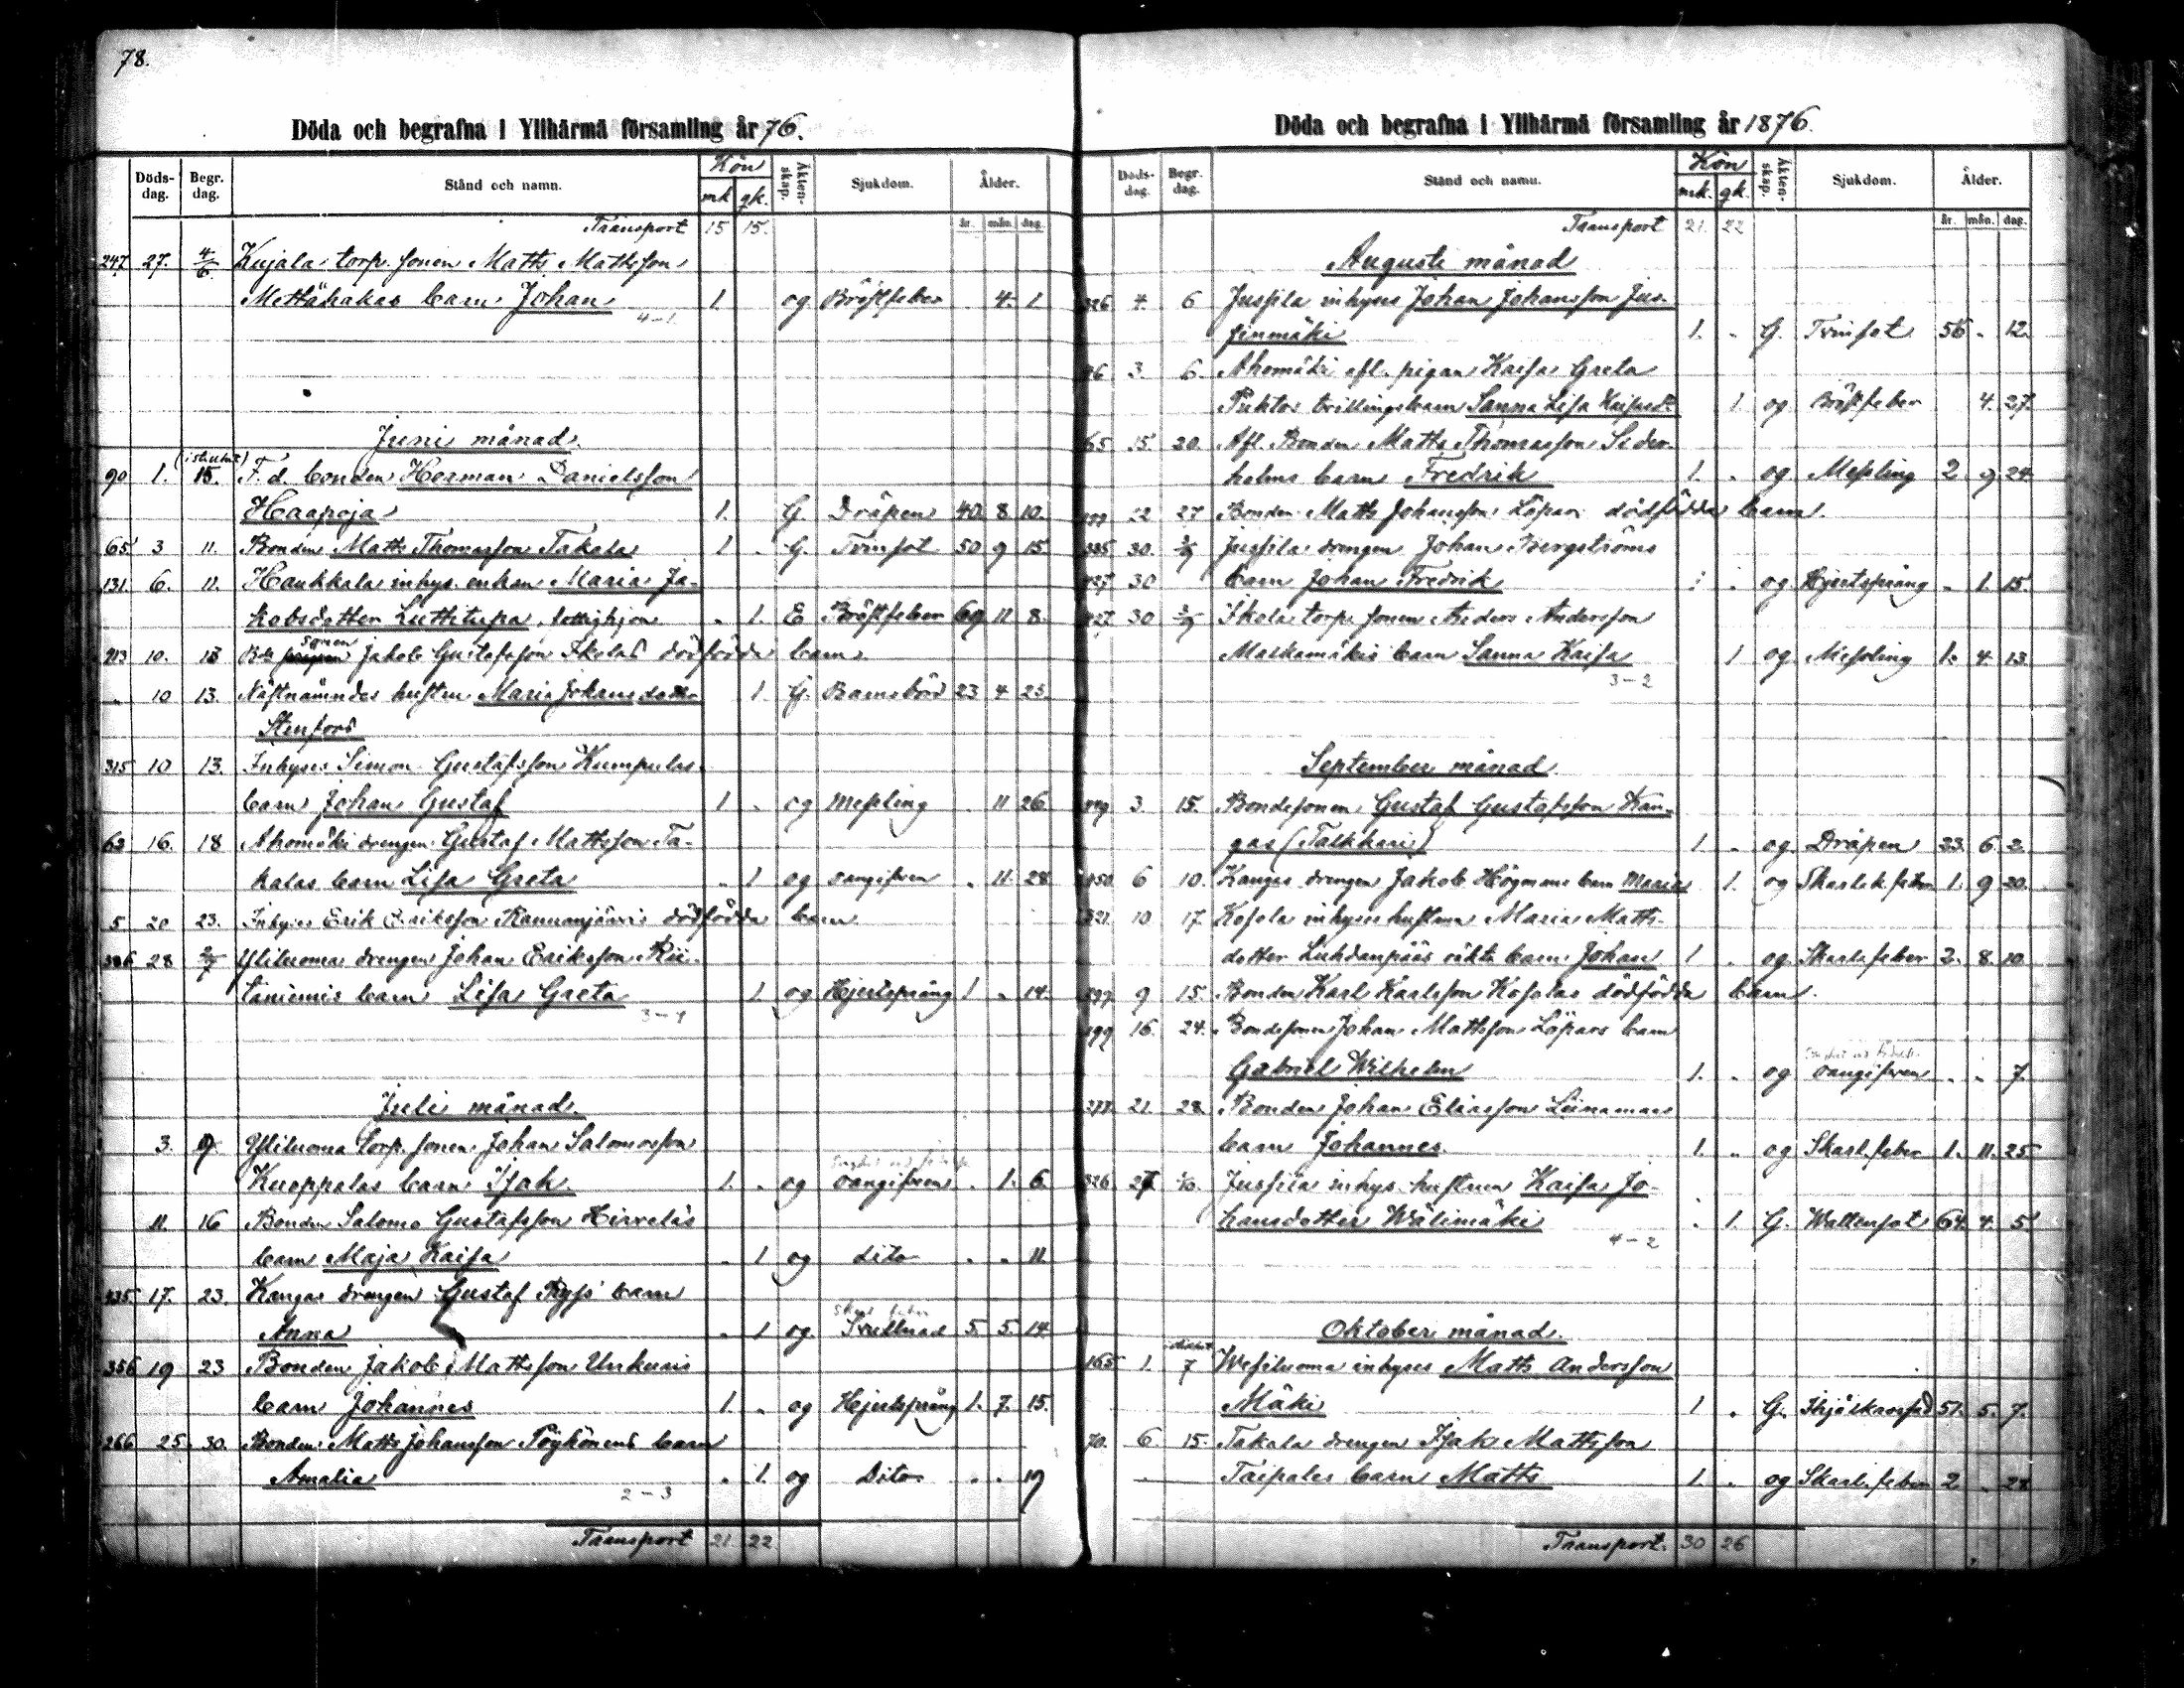 78.
Döda och begrafna i Ylihärmä församling år 76.
Döds-dag. Begr. dag. Stånd och namn. Kön mk gk. Äkten-skap. Sjukdom. Ålder. år. mån. dag.
Transport 15 15.
247 27. 4/6 Kujala torp. sonen Matts Mattsson
Mettähakas barn Johan 1. og Bröstfeber 4. 1.
4-1
Juni månad.
90 1. 15. F. d. bonden Herman Danielsson
Haapoja 1. G. Dråpen 40. 8. 10.
65 3 11. Bonden Matts Thomasson Takala 1 . G. Tvinsot 50 9 15
131. 6. 11. Haukkala inhys. enkan Maria Ja-
kobsdotter Luttitupa, fattighjon . 1. E Bröstfeber 69 11 8.
213 10. 13 sonen Jakob Gustafsson Skolas dödfödda barn
" 10 13. Nästnämndes hustru Maria Johansdotter 1. G. Barnsbörd 23 4 23.
Stenfors
315 10 13. Inhyses Simon Gustafsson Kumpulas
barn Johan Gustaf 1 . og Messling . 11 26
63 16. 18 Ahomäki drengen Gustaf Mattsson Ta-
kalas barn Lisa Greta . 1 og oangifven . 11. 28
5 20 23. Inhyses Erik Eriksson Rannanjärvis dödfödda barn
386 28 2/7 Yliluoma drengen Johan Eriksson Rii-
taniemis barn Lisa Greta 1 og Hjertsprång 1 . 14.
Juli månad.
3. 9 Yliluoma torp. sonen Johan Salomosson
Kuoppalas barn Isak 1. . og oangifven . 1. 6.
11. 16 Bonden Salomo Gustafsson Hirveläs
barn Maja Kaisa . 1 og dito . . 11.
435. 17. 23. Kangas drengen Gustaf Ryss' barn
Anna . 1 og. 5. 5. 14
356 19 23 Bonden Jakob Mattsson Unkuris
barn Johannes 1. . og Hjertsprång 1. 7. 15.
266 25 30. Bonden Matts Johansson Pöykönens barn
Amalia . 1. og Dito . . 19
2-3
Transport 21 22
Döda och begrafna i Ylihärmä församling år 1876.
Döds-dag. Begr. dag. Stånd och namn. Kön mk. gk. Äkten-skap. Sjukdom. Ålder. år. mån. dag.
Transport 21. 22
Augusti månad
326 4. 6 Jussila inhyses Johan Johansson Jus-
sinmäki 1. . G. Tvinsot 56 . 12.
3. 6. Ahomäki afl. pigan Kaisa Greta
trillingsbarn Sanna Lisa 1 og Bröstfeber 4. 27.
65 15. 20. Afl. Bonden Matts Thomasson Seder-
holms barn Fredrik 1. . og Messling 2. 9. 24
199 22 27 Bonden Matts Johansson Löpars dödfödda barn.
335 30. 3/9 Jussila drengen Johan Bergströms
30 barn Johan Fredrik 1 . og Hjertsprång . 1. 15.
30 3/9 Skola torp. sonen Anders Andersson
Maskamäkis barn Sanna Kaisa 1 og Messling 1. 4. 13.
3-2
September månad.
3. 15. Bondesonen Gustaf Gustafsson Kan-
gas (Talkkari) 1 . og Dråpen 23. 6. 2.
450 6 10. Kangas drengen Jakob Högmans barn Maria 1. og Skarlak. feber 1. 9 20.
321. 10 17. Kosola inhyses hustrun Maria Matts-
dotter Luhdanpääs äkta barn Johan 1 . og Skarl. feber 2. 8. 10
9 15. Bonden Karl Karlsson Kosolas dödfödda barn.
199 16. 24. Bondesonen Johan Mattsson Löpars barn
Gabriel Wilhelm 1. . og oangifven . . 7.
277. 21. 28. Bonden Johan Eliasson Leinamas
barn Johannes 1. . og Skarl. feber 1. 11. 25
326. 27 1/10. Jussila inhys. hustrun Kaisa Jo-
hansdotter Wälimäki . 1. G. Wattensot 64. 4. 5
4-2
Oktober månad.
165 1. 7 Wesiluoma inhyses Matts Andersson
Mäki 1 . G. 51. 5. 7.
70. 6. 15. Takala drengen Isak Mattsson
Taipales barn Matts 1. . og Skarl. feber 2 . 28
Transport. 30 26